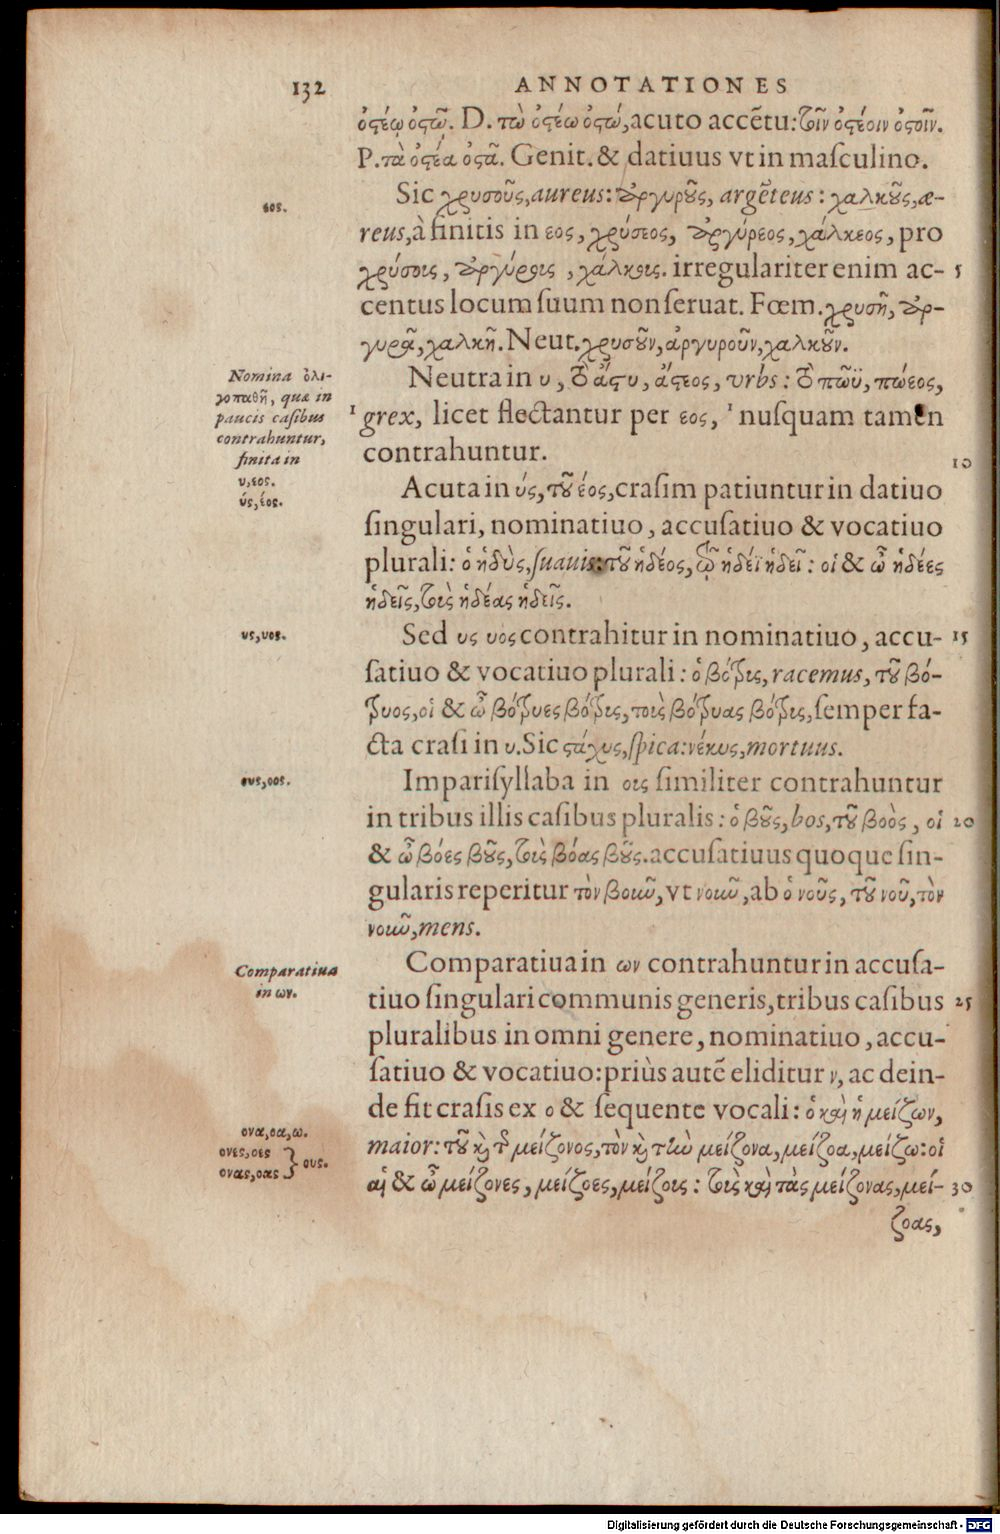 132 ANNOTATIONES
ὀστέῳ ὀστῷ. D. τὼ ὀστέω ὀστώ, acuto accẽtu: τοῖν ὀστέοιν ὀστοῖν.
P. τὰ ὀστέα ὀστᾶ. Genit. & datiuus vt in maſculino.
eos.
Sic χρυσοῦς, aureus: ἀργυροῦς, argẽteus: χαλκοῦς, æ-
reus, à finitis in εος, χρύσεος, ἀργύρεος, χάλκεος, pro
χρύσοις, ἀργύροις, χάλκοις. irregulariter enim ac- 5
centus locum ſuum non ſeruat. Fœm. χρυσῆ, ἀρ-
γυρᾶ, χαλκῆ. Neut. χρυσοῦν, ἀργυροῦν, χαλκοῦν.
Nomina ὀλι-
γοπαθῆ, quæ in
paucis caſibus
contrahuntur,
finita in
υ, εος.
ύς, έος.
Neutra in υ, τὸ ἄστυ, ἄστεος, vrbs: τὸ πῶϋ, πώεος,
¹ grex, licet flectantur per εος, ¹ nuſquam tamen
contrahuntur. 10
Acuta in ύς, τοῦ έος, craſim patiuntur in datiuo
ſingulari, nominatiuo, accuſatiuo & vocatiuo
plurali: ὁ ἡδὺς, ſuauis: τοῦ ἡδέος, τῷ ἡδέϊ ἡδεῖ: οἱ & ὦ ἡδέες
ἡδεῖς, τοὺς ἡδέας ἡδεῖς.
υς, υος.
Sed υς υος contrahitur in nominatiuo, accu- 15
ſatiuo & vocatiuo plurali: ὁ βότρυς, racemus, τοῦ βό-
τρυος, οἱ & ὦ βότρυες βότρυς, τοὺς βότρυας βότρυς, ſemper fa-
cta craſi in υ. Sic στάχυς, ſpica: νέκυς, mortuus.
ους, οος.
Imparisyllaba in ους ſimiliter contrahuntur
in tribus illis caſibus pluralis: ὁ βοῦς, bos, τοῦ βοὸς, οἱ 20
& ὦ βόες βοῦς, τοὺς βόας βοῦς. accuſatiuus quoque ſin-
gularis reperitur τὸν βοῦν, vt νοῦν, ab ὁ νοῦς, τοῦ νοῦ, τὸν
νοῦν, mens.
Comparatiua
in ων.
Comparatiua in ων contrahuntur in accuſa-
tiuo ſingulari communis generis, tribus caſibus 25
pluralibus in omni genere, nominatiuo, accu-
ſatiuo & vocatiuo: priùs autẽ eliditur ν, ac dein-
de fit craſis ex ο & ſequente vocali: ὁ καὶ ἡ μείζων,
ονα, οα, ω.
ονες, οες
ονας, οας } ους.
maior: τοῦ καὶ τῆς μείζονος, τὸν καὶ τὴν μείζονα, μείζοα, μείζω: οἱ
αἱ & ὦ μείζονες, μείζοες, μείζους: τοὺς καὶ τὰς μείζονας, μεί- 30
ζοας,
Digitalisierung gefördert durch die Deutsche Forschungsgemeinschaft - DFG